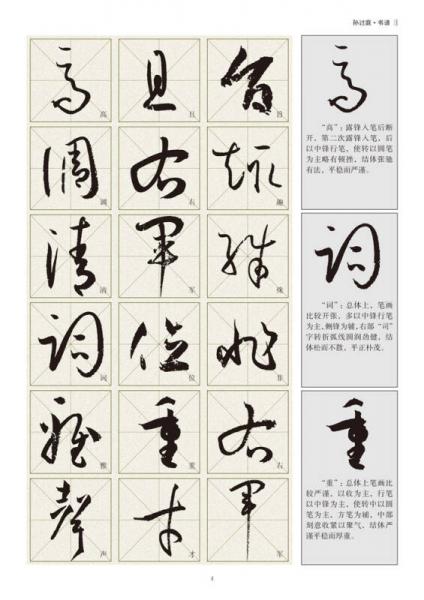 孙过庭·书谱
旨趣殊非右军
且右军位重才
高调清词雅声
高
“高”：露锋入笔后断
开，第二次露锋入笔，后
以中锋行笔，使转以圆笔
为主略有顿挫，结体张弛
有法，平稳而严谨。
词
“词”：总体上，笔画
比较开张，多以中锋行笔
为主，侧锋为辅，右部“司”
字转折弧线圆润劲健，结
体松而不散，平正朴茂。
重
“重”：总体上笔画比
较严谨，以收为主，行笔
以中锋为主，使转中以圆
笔为主，方笔为辅，中部
刻意收紧以聚气，结体严
谨平稳而厚重。